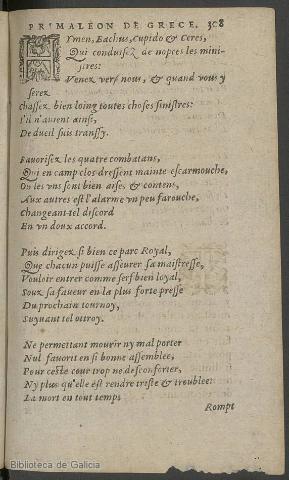 PRIMALEON DE GRECE. 308
HYmen, Bachus, Cupido & Ceres,
Qui conduisez de nopces les mini-
stres:
Venez vers nous, & quand vous y
serez
Chassez bien loing toutes choses sinistres:
S'il n'auient ainsi,
De dueil suis transsy.
Fauorisez les quatre combatans,
Qui en camp clos dressent mainte escarmouche,
Ou les vns sont bien aises & contens,
Aux autres est l'alarme vn peu farouche,
Changeant tel discord
En vn doux accord.
Puis dirigez si bien ce parc Royal,
Que chacun puisse asseurer sa maistresse,
Vouloir entrer comme serf bien loyal,
Souz sa faueur en la plus forte presse
Du prochain tournoy,
Suyuant tel ottroy.
Ne permettant mourir ny mal porter
Nul fauorit en si bonne assemblee,
Pour ceste cour trop ne desconforter,
Ny plus qu'elle est rendre triste & troublee:
La mort en tout temps
Rompt
Biblioteca de Galicia